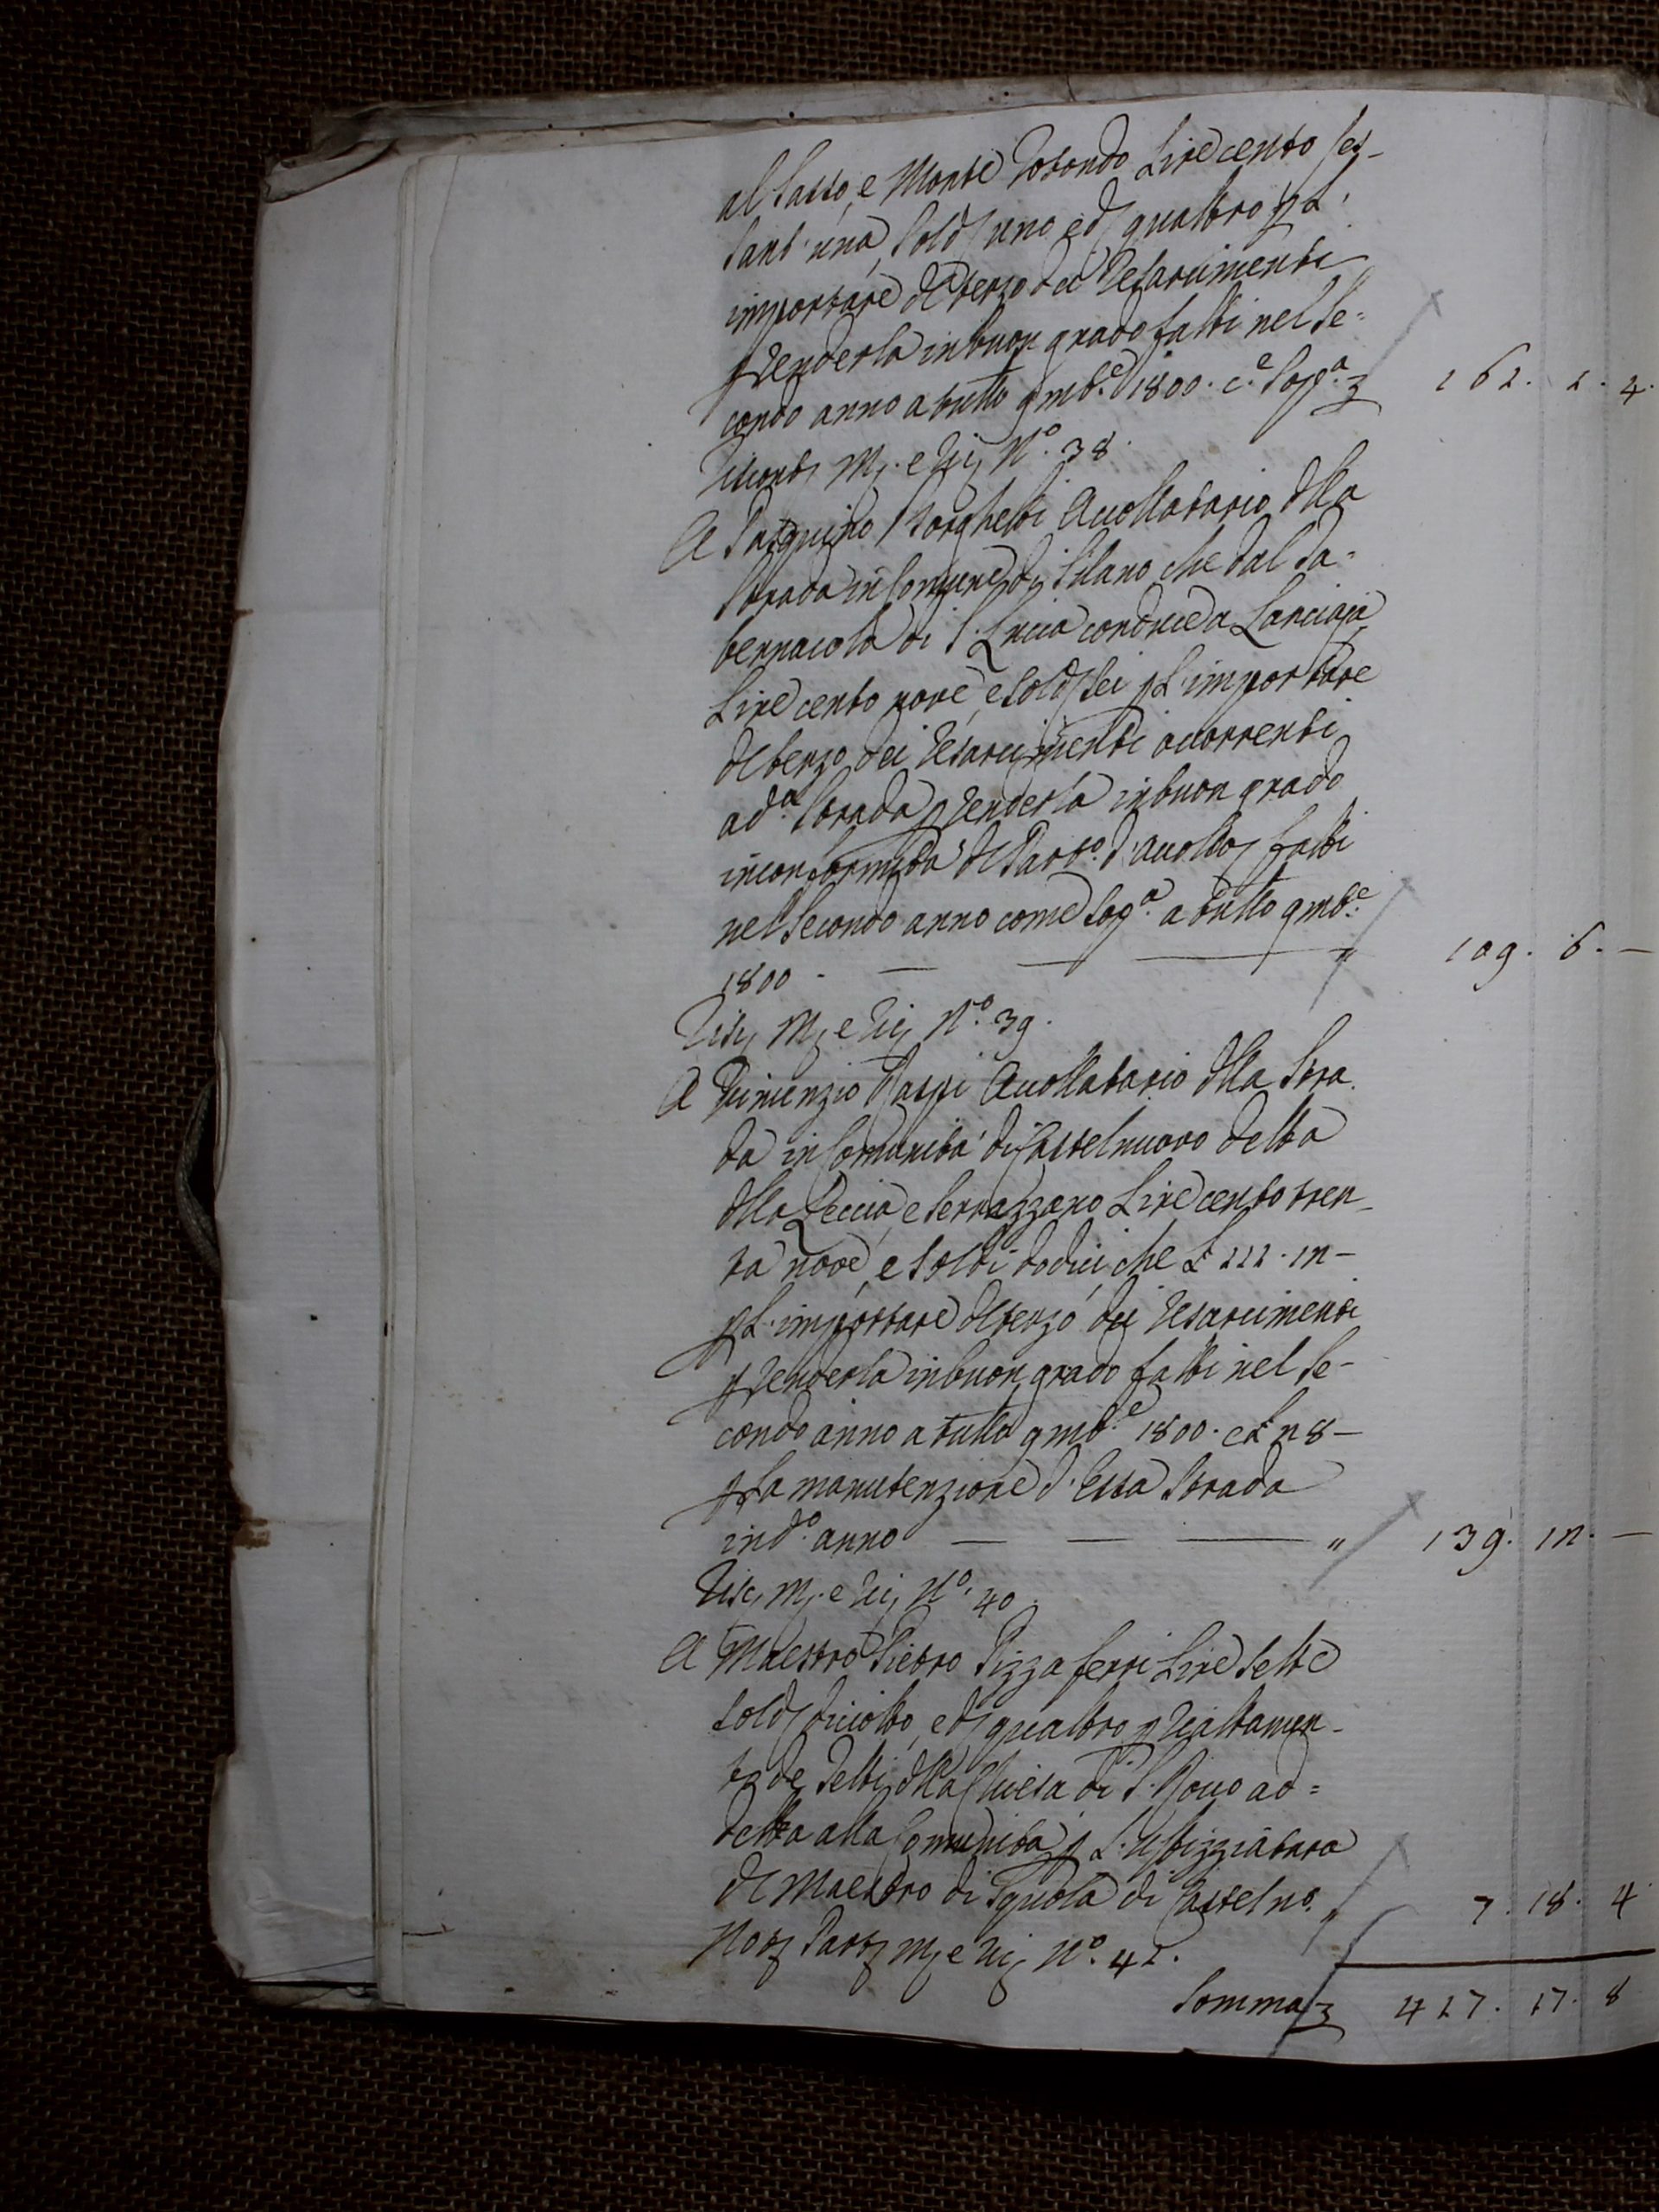 al Sasso, e Monte Rotondo Lire cento ses-
sant'una, Soldi uno, e d. quattro p. L'
importare del terzo dei Resarcimenti
p. renderla in buon grado fatti nel Se=
condo anno a tutto 9mb.e 1800. c.e Sop.a 161. 1. 4.
Riscont. M. e Ric. N.o 38.
A Pasquino Borghetti Accollatario della
Strada in Comune di Silano che dal Ta=
bernacolo di S. Lucia conduce a Lanciaja
Lire cento nove, e Soldi Sei p. L'importare
del terzo dei Resarcimenti occorrenti
a d.a Strada p. renderla in buon grado
in conformità del Part.o d'Accollo, fatti
nel Secondo anno come Sop.a a tutto 9mb.e
1800 - — — — " 109. 6. —
Risc. M. e Ric. N.o 39.
A Vincenzio Raspi Accollatario della Stra.
da in Comunità di Castelnuovo detta
della Leccia, e Serrazzano Lire cento tren-
ta nove, e Soldi dodici che £ 111. 12 -
p. L'importare del terzo dei Resarcimenti
p. renderla in buon grado fatti nel Se-
condo anno a tutto 9mb.e 1800. e £ 28 -
p. La manutenzione d'Essa Strada
in d.o anno — — — " 139. 12. —
Risc. M. e Ric. N.o 40.
A Maestro Pietro Pizzaferri Lire Sette
Soldi diciotto, e d. quattro p. Riattamen-
to de Tetti della Chiesa di S. Rocco ad=
detta alla Comunità p. L'Uffizziatura
del Maestro di Squola di Castelno. " 7. 18. 4
Not. Part. M. e Ric. N.o 41.
Somma 417. 17. 8